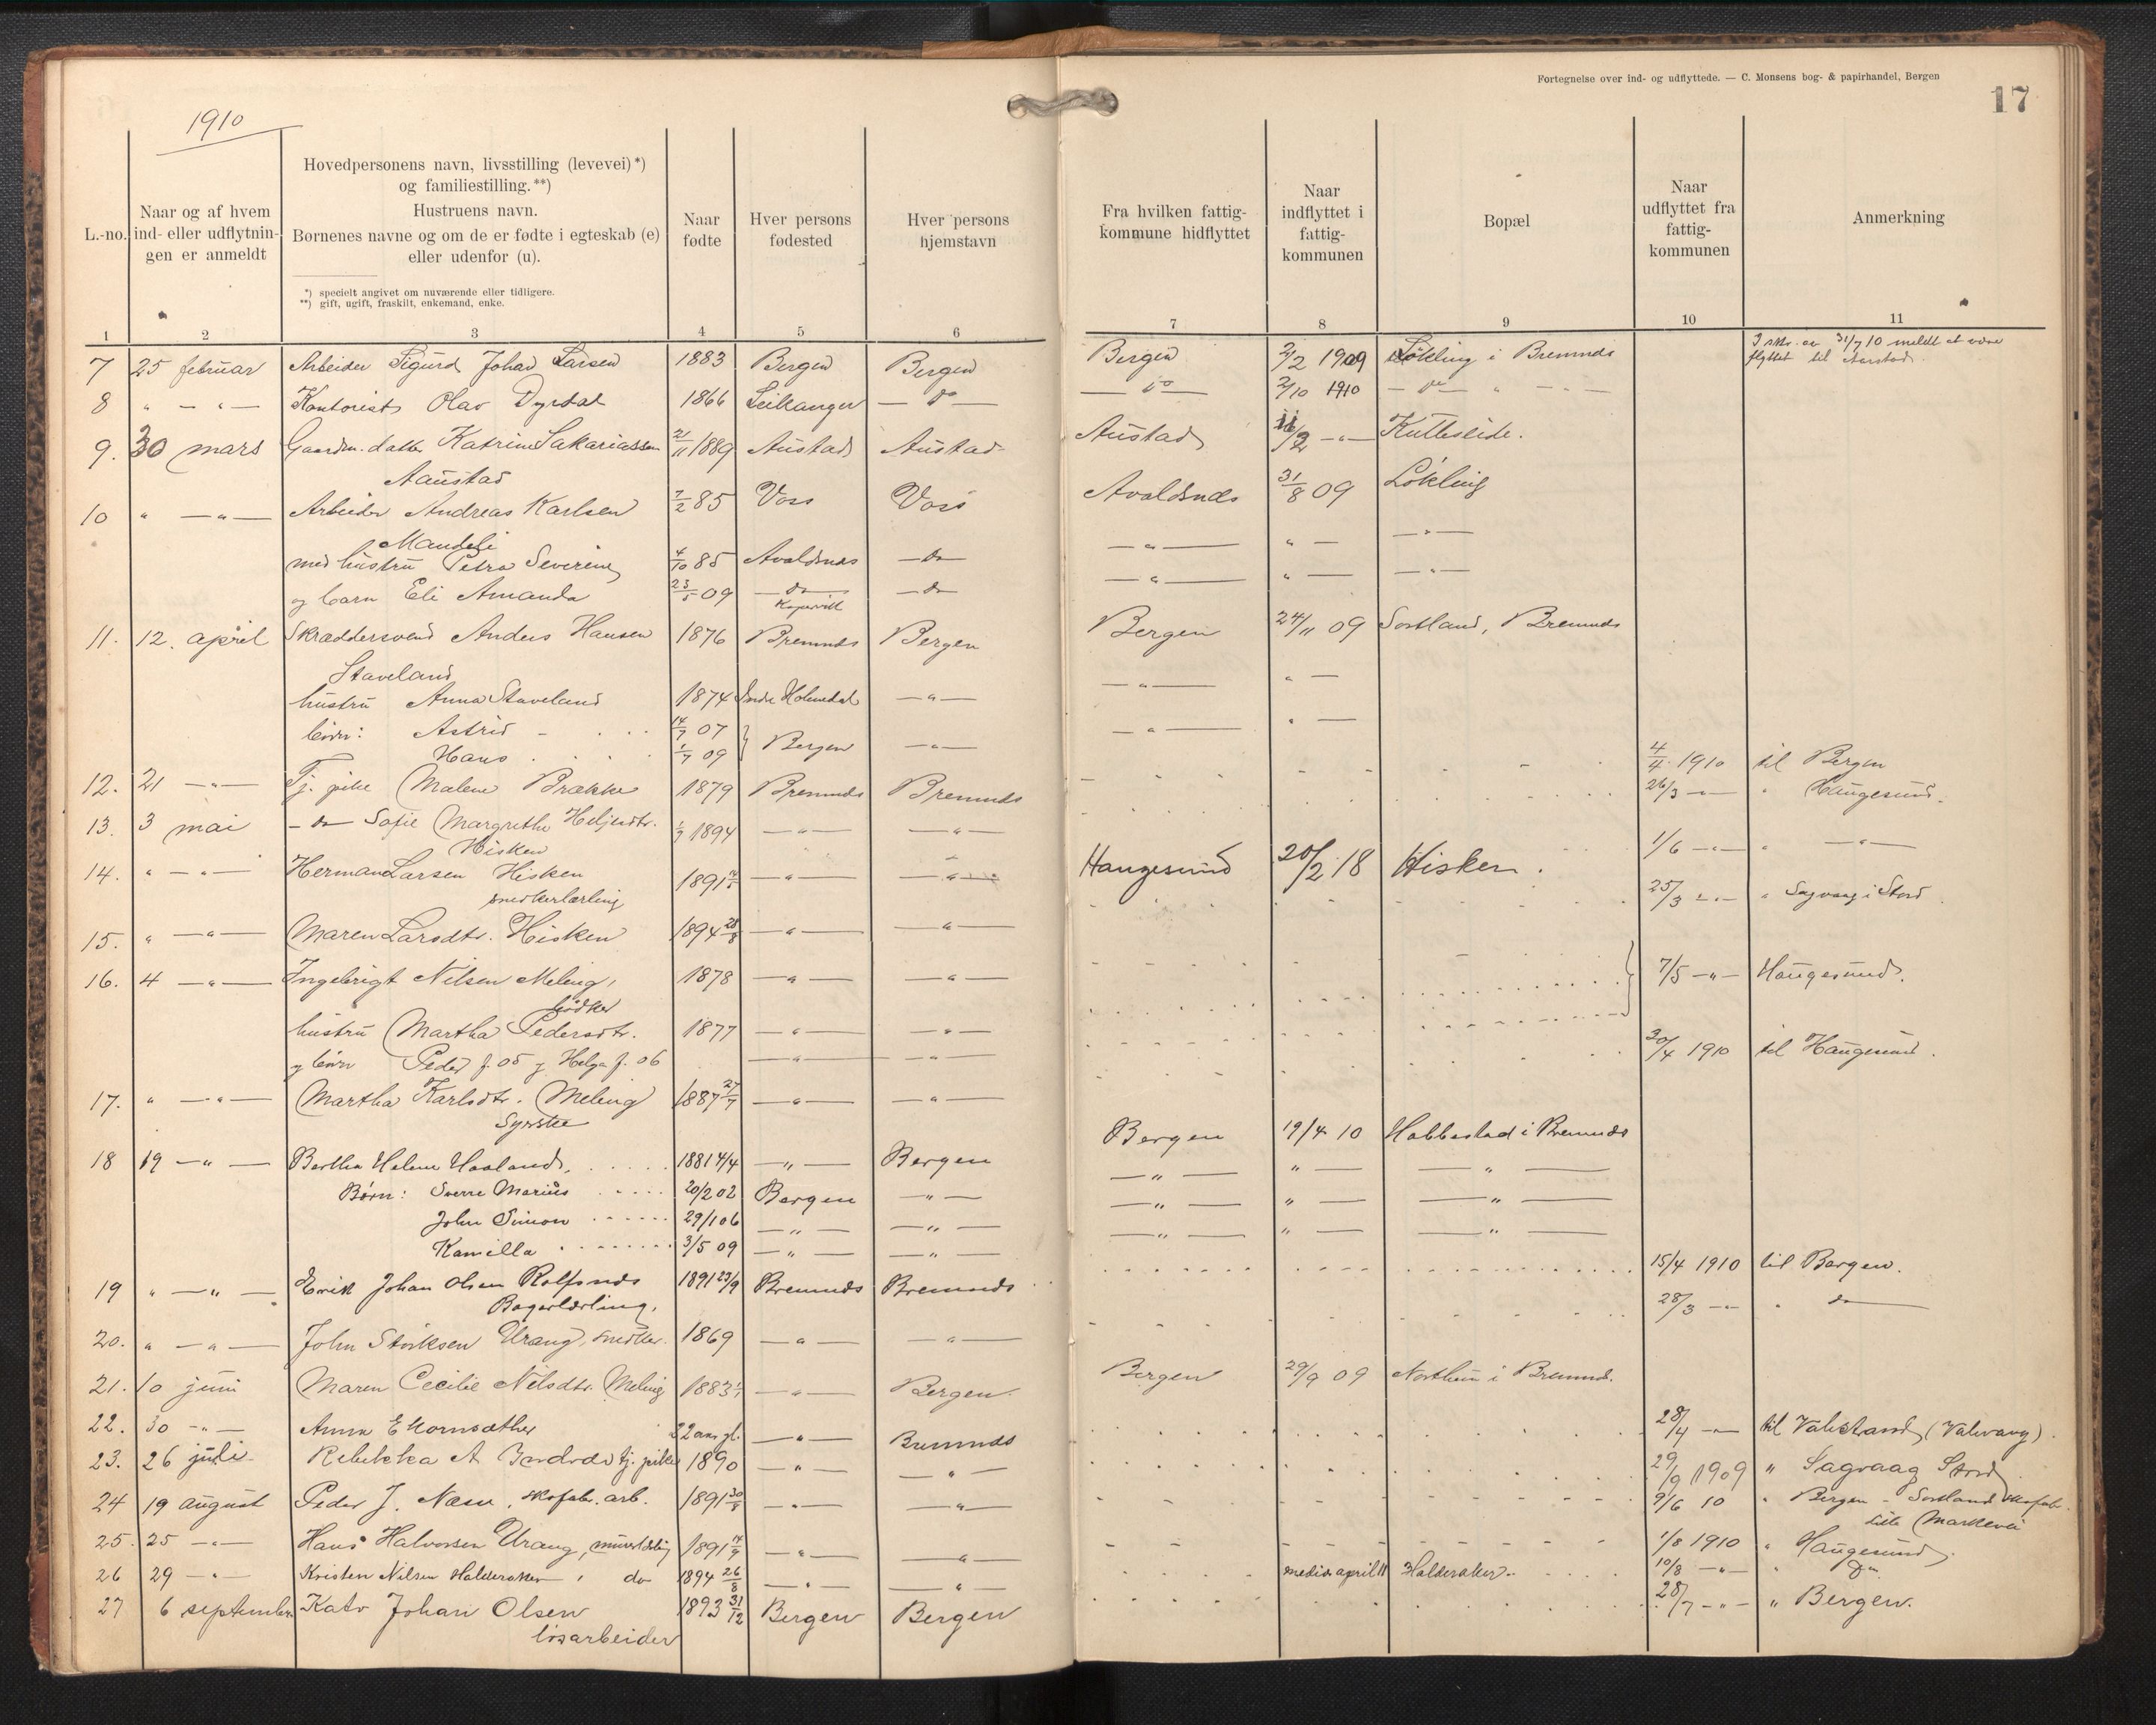 Fortegnelse over ind- og udflyttede. — C. Monsens bog- & papirhandel, Bergen
17
1910
L.-no.
Naar og af hvem ind- eller udflytningen er anmeldt
Hovedpersonens navn, livsstilling (levevei)*) og familiestilling.**)
Hustruens navn.
Børnenes navne og om de er fødte i egteskab (e) eller udenfor (u).
*) specielt angivet om nuværende eller tidligere.
**) gift, ugift, fraskilt, enkemand, enke.
Naar fødte
Hver persons fødested
Hver persons hjemstavn
Fra hvilken fattigkommune hidflyttet
Naar indflyttet i fattigkommunen
Bopæl
Naar udflyttet fra fattigkommunen
Anmerkning
1 2 3 4 5 6 7 8 9 10 11
7 25 februar Arbeider Sigurd Johan Larsen 1883 Bergen Bergen Bergen 2/2 1909 Løkling i Bremnes 3 skr. av 31/7 10 meldt at være
flyttet til Aarstad
8 " — " — Kontorist Olav Dyrdal 1866 Leikanger — do — — do — 2/10 1910 — do — " —
9. 30 mars Gaardm. datter Katrine Sakariassen 21/11 1889 Austad Austad Austad 11/2 — " — Kulleseide.
Aaustad
10 " — " — Arbeider Andreas Karlsen 7/2 85 Voss Voss Avaldsnes 31/8 09 Løkling
Mandeli
med hustru Petra Severine 4/10 85 Avaldsnes — do — — " — " — — " —
og barn Eli Amanda 23/5 09 — do — — do — — " — " — — " —
Kopervik
11. 12. april Skræddersvend Anders Hansen 1876 Bremnes Bergen Bergen 24/11 09 Sortland, Bremnes
Staveland
hustru Anna Staveland 1874 Indre Holmedal — " — — " — " —
børn: Astrid 14/7 07 Bergen — " — — " — " —
Hans 1/7 09
12. 21 — " — Tj. pike Malene Brække 1879 Bremnes Bremnes 4/4 1910 til Bergen
13. 3 mai — do — Sofie Margrethe Heljesdtr. 1/7 1894 — " — — " — 26/3 — " — " Haugesund.
Hisken
14. " — " — Herman Larsen Hisken 1891 — " — — " — Haugesund 20/2 18 Hisken. 1/6 — " — " — " —
snedkerlærling
15. " — " — Maren Larsdtr. Hisken 1894 28/8 — " — — " — 25/3 — " — " Sagvaag i Stord
16. 4 — " — Ingebrigt Nilsen Meling, 1878 — " — — " — 7/5 — " — Haugesund.
bødker
hustru Martha Pedersdtr. 1877 — " — — " —
og børn Peder f. 05 og Helga f. 06 — " — — " —
17. " — " — Martha Karlsdtr. Meling 1887 27/7 — " — — " — 30/4 1910 til Haugesund.
Syerske
18 19 — " — Bertha Helene Haaland. 1881 4/4 — " — Bergen Bergen 19/4 10 Habbestad i Bremnes
Børn: Sverre Marius 20/2 02 Bergen — " — — " — " — — " —
John Simon 29/1 06 — " — — " — — " — " — — " —
Kamilla 3/5 09 — " — — " — — " — " — — " —
19 " — " — Erik Johan Olsen Rolfsnes 1891 23/9 Bremnes Bremnes 15/4 1910 til Bergen.
Bagerlærling.
20. " — " — John Størksen Urang, snedker 1869 — " — — " — 28/3 — " — " do —
21. 10 juni Maren Cecilie Nilsdtr. Meling 1883 — " — Bergen. Bergen 29/9 09 Northun i Bremnes.
22. 30 — " — Anna E Hornsæther 22 aar gl. — " — Bremnes 28/4 — " — til Valestrand (Valevaag).
23. 26 juli Rebekka A Indrevo tj. pike 1890 — " — — " — 29/9 1909 " Sagvaag Stord
24 19 august Peder J. Næsse, skofabr. arb. 1891 30/8 — " — — " — 9/6 10 " Bergen - Sortland skofabr.
Lille Markevei
25. 25 — " — Hans Halvorsen Urang, murerlærling 1891 14/9 — " — — " — 1/8 1910 " Haugesund.
26 29 — " — Kristen Nilsen Halderaker " do 1894 26/8 — " — — " — medio april 11 Halderaker. 10/8 — " — " Do.
27 6 september Kato Johan Olsen 1893 31/12 Bergen Bergen 28/7 — " — " Bergen.
løsarbeider